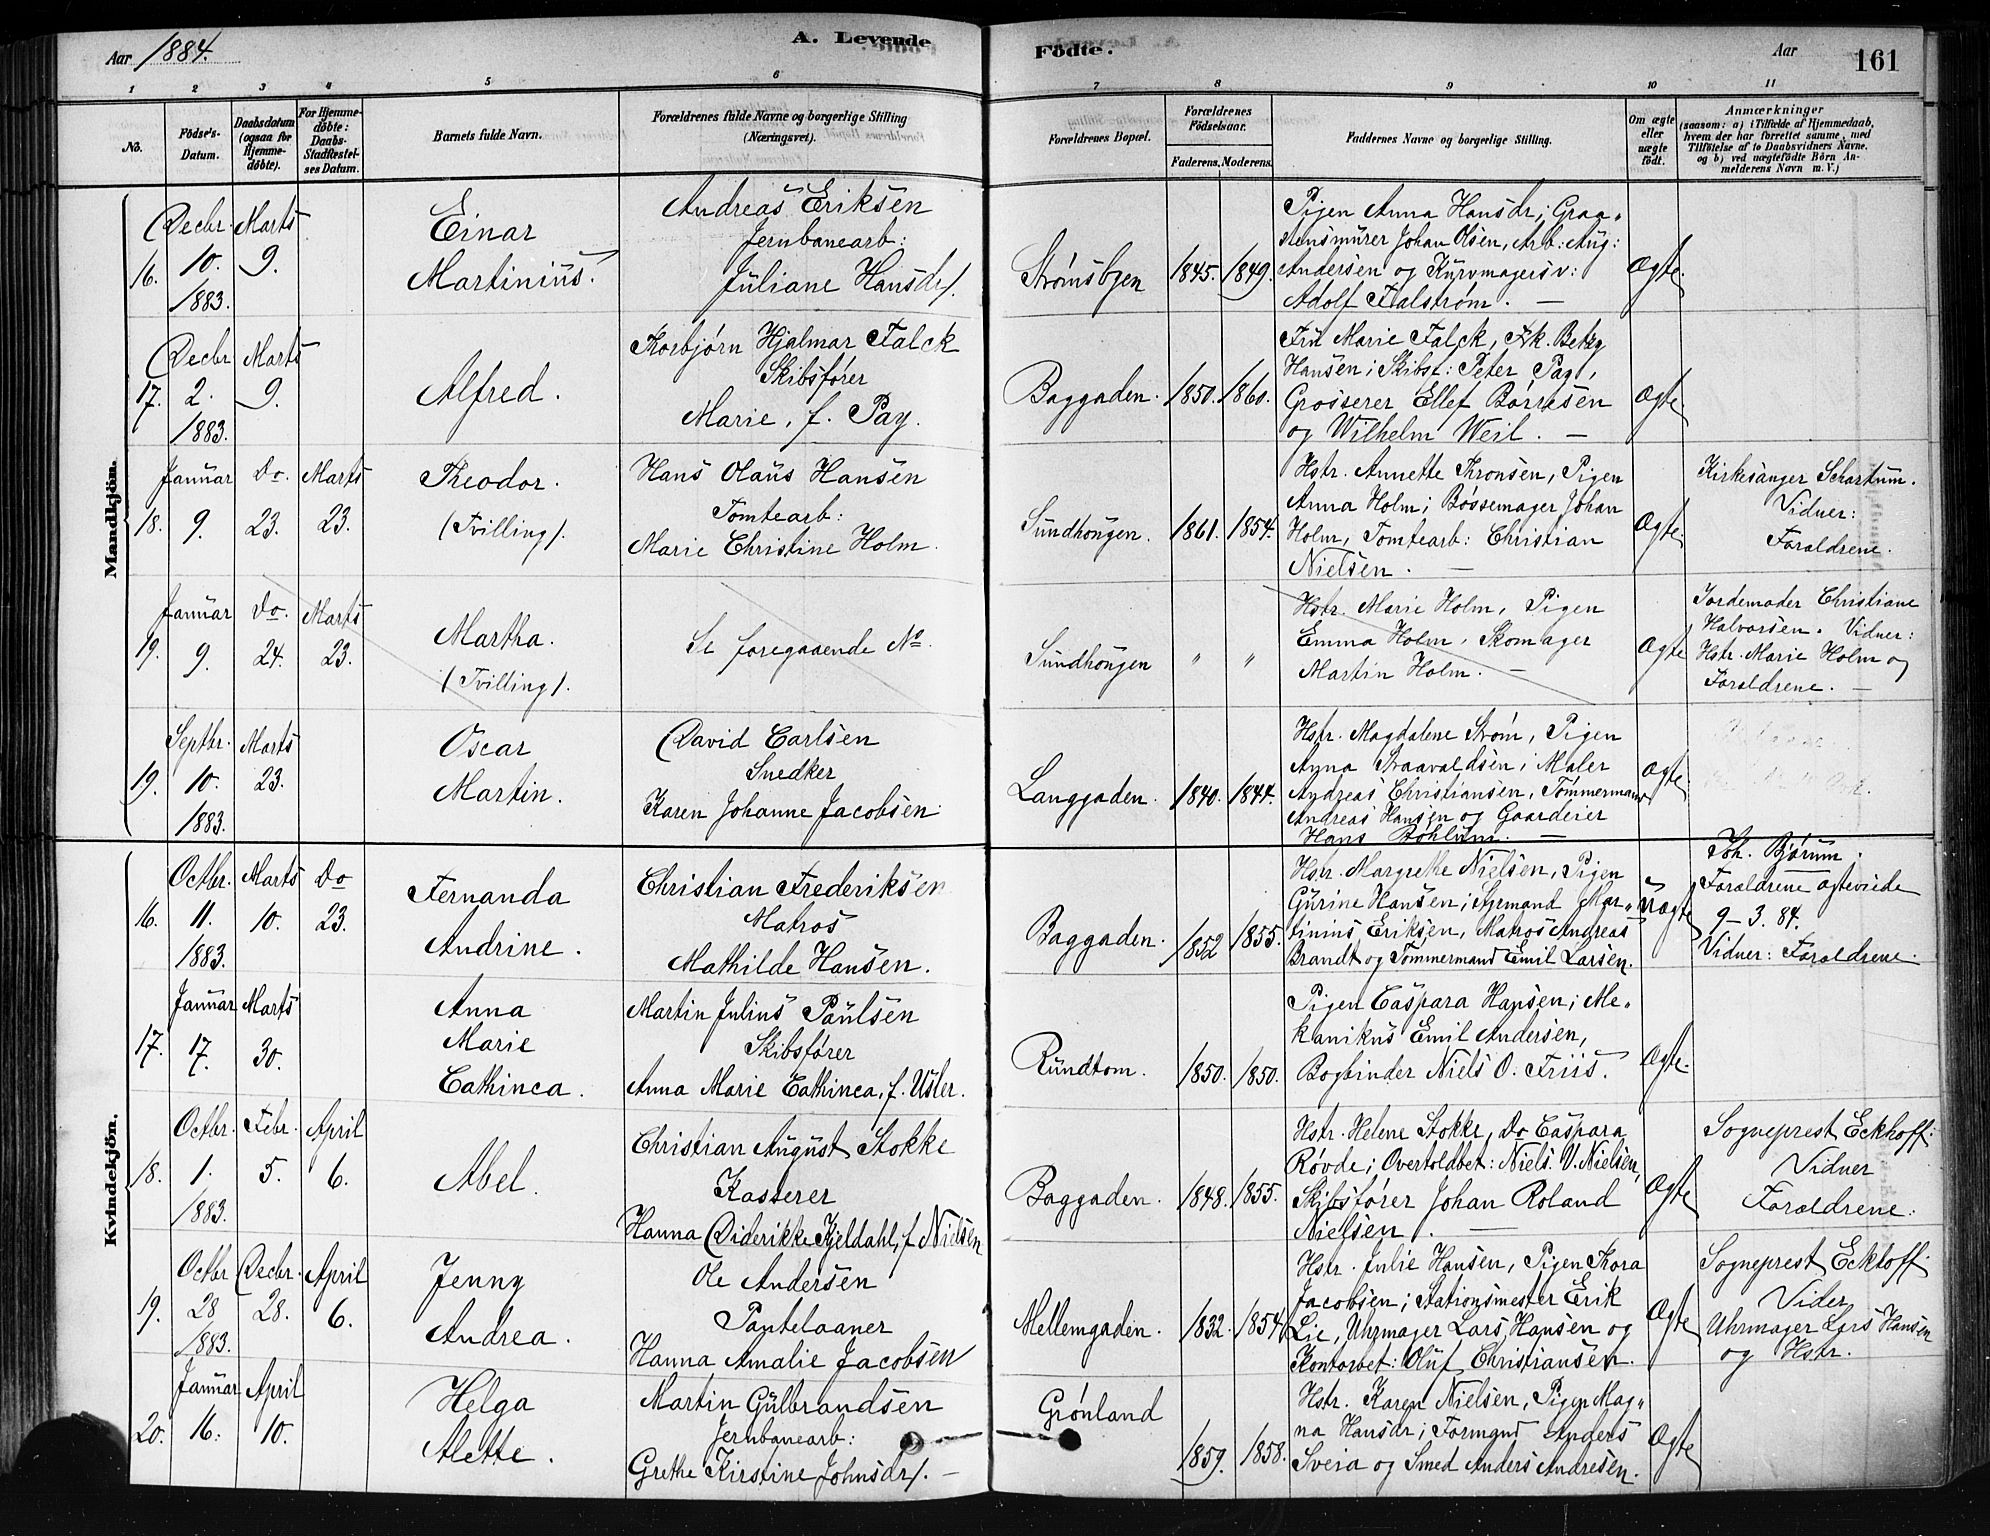 Aar 1884.
A. Levende
Födte.
Aar
161
1 2 3 4 5 6 7 8 9 10 11
No.
Födsels-Datum.
Daabsdatum (ogsaa for Hjemme-döbte).
For Hjemme-döbte: Daabs-Stadfæstel-ses Datum.
Barnets fulde Navn.
Forældrenes fulde Navne og borgerlige Stilling (Næringsvei).
Forældrenes Bopæl.
Forældrenes Födselsaar.
Faderens. Moderens.
Faddernes Navne og borgerlige Stilling.
Om ægte eller uægte födt.
Anmærkninger
(saasom: a) i Tilfælde af Hjemmedaab, hvem der har forrettet samme, med Tilföielse af to Daabsvidners Navne, og b) ved uægtefödte Börn An-melderens Navn m. V.)
Mandkjön.
16.
Decbr. 10. 1883.
Marts 9.
Einar
Martinius.
Andreas Eriksen
Jernbanearb:
Juliane Hansdr.
Strømsbyen
1845. 1849.
Pigen Anna Hansdr; Graa-
stensmurer Johan Olsen, Arb: Aug:
Andersen og Kurvmagersv:
Adolf Falstrøm. —
Ægte.
17.
Decbr 2. 1883.
Marts 9.
Alfred.
Thorbjørn Hjalmar Falck
Skibsfører
Marie, f. Pay.
Baggaden.
1850. 1860.
Fru Marie Falck, Frk. Betzy
Hansen; Skibsf: Peter Pay,
Grosserer Ellef Børresen
og Wilhelm Weil. —
Ægte
18.
Januar 9.
Do. 23.
Marts 23.
Theodor.
(Tvilling).
Hans Olaus Hansen
Tomtearb:
Marie Christine Holm.
Sundhougen.
1861. 1854.
Hstr. Annette Thronsen, Pigen
Anna Holm; Bøssemager Johan
Holm, Tomtearb: Christian
Nielsen. —
Ægte.
Kirkesanger Schartum.
Vidner:
Forældrene.
19.
Januar 9.
Do. 24.
Marts 23.
Martha.
(Tvilling).
Se foregaaende No.
Sundhougen
" "
Hstr. Marie Holm, Pigen
Emma Holm, Skomager
Martin Holm. —
Ægte
Jordemoder Christiane
Halvorsen. Vidner:
Hstr. Marie Holm og
Forældrene. —
19.
Septbr. 10. 1883.
Marts 23.
Oscar
Martin.
David Carlsen
Snedker
Karen Johanne Jacobsen.
Langgaden.
1840. 1844.
Hstr. Magdalene Strøm, Pigen
Anna Traavaldsen; Maler
Andreas Christiansen, Tømmermand
Andreas Hansen og Gaardeier
Hans Bøhlum. —
Ægte.
Kvindekjön.
16.
Octbr. 11. 1883.
Marts 10.
Do 23.
Fernanda
Andrine.
Christian Frederiksen
Matros
Mathilde Hansen.
Baggaden.
1852 1855.
Hstr. Margrethe Nielsen, Pigen
Gurine Hansen; Styrmand Mar-
tinius Eriksen, Matros Andreas
Brandt og Tømmermand Emil Larsen.
Uægte
Joh. Bjørum.
Forældrene ægteviede
9-3. 84.
Vidner: Forældrene.
17.
Januar 17.
Marts 30.
Anna
Marie
Cathinca.
Martin Julius Paulsen
Skibsfører
Anna Marie Cathinca, f. Usler.
Rundtom.
1850. 1850.
Pigen Caspara Hansen; Me-
kanikus Emil Andersen,
Bogbinder Niels O. Friis.
Ægte.
18.
Octbr. 1. 1883.
Febr. 5.
April 6.
Abel.
Christian August Stokke
Kasserer
Hanna Diderikke Kjeldahl, f Nielsen
Baggaden.
1848. 1855.
Hstr. Helene Stokke, Do Caspara
Røvde; Overtoldbet: Niels. V. Nielsen,
Skibsfører Johan Roland
Nielsen. —
Ægte
Sogneprest Eckhoff.
Vidner
Forældrene.
19.
Octbr 28 1883.
Decbr. 28.
April 6.
Jenny
Andrea.
Ole Andersen
Pantelaaner
Hanna Amalie Jacobsen
Mellemgaden.
1832. 1854.
Hstr. Julie Hansen, Pigen Thora
Jacobsen; Stationsmester Erik
Lie, Uhrmager Lars Hansen og
Kontorbet: Oluf Christiansen.
Ægte
Sogneprest Eckhoff.
Vider
Uhrmager Lars Hansen
og Hstr.
20.
Januar 16.
April 10.
Helga
Alette.
Martin Gulbrandsen
Jernbanearb:
Grethe Kirstine Johnsdr. —
Grønland
1859. 1858.
Hstr. Karen Nielsen, Pigen Mag-
na Hansdr; Formand Anders
Sveia og Smed Anders Andresen.
Ægte